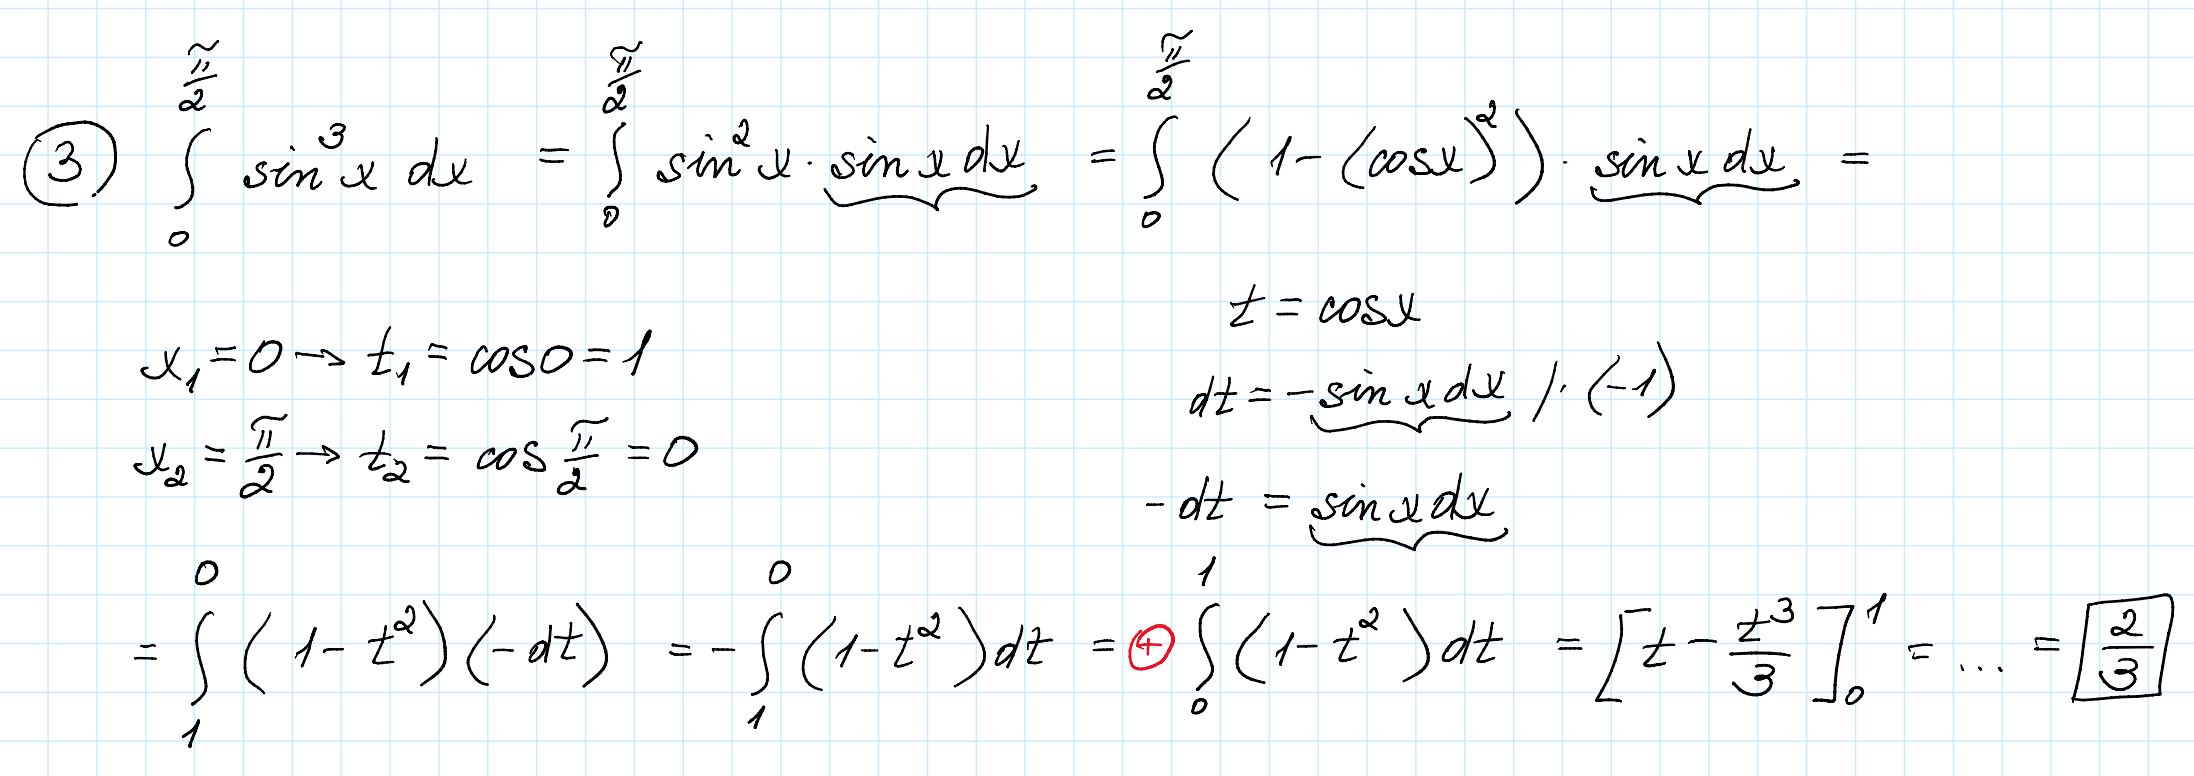 (3) ∫₀^{π/2} sin³x dx = ∫₀^{π/2} sin²x · sin x dx = ∫₀^{π/2} (1-(cosx)²) · sin x dx =
t = cosx
x₁ = 0 → t₁ = cos0 = 1
dt = -sin x dx /· (-1)
x₂ = π/2 → t₂ = cos π/2 = 0
-dt = sin x dx
= ∫₁⁰ (1-t²)(-dt) = -∫₁⁰ (1-t²)dt = ⊕ ∫₀¹ (1-t²)dt = [t - t³/3]₀¹ = ... = 2/3